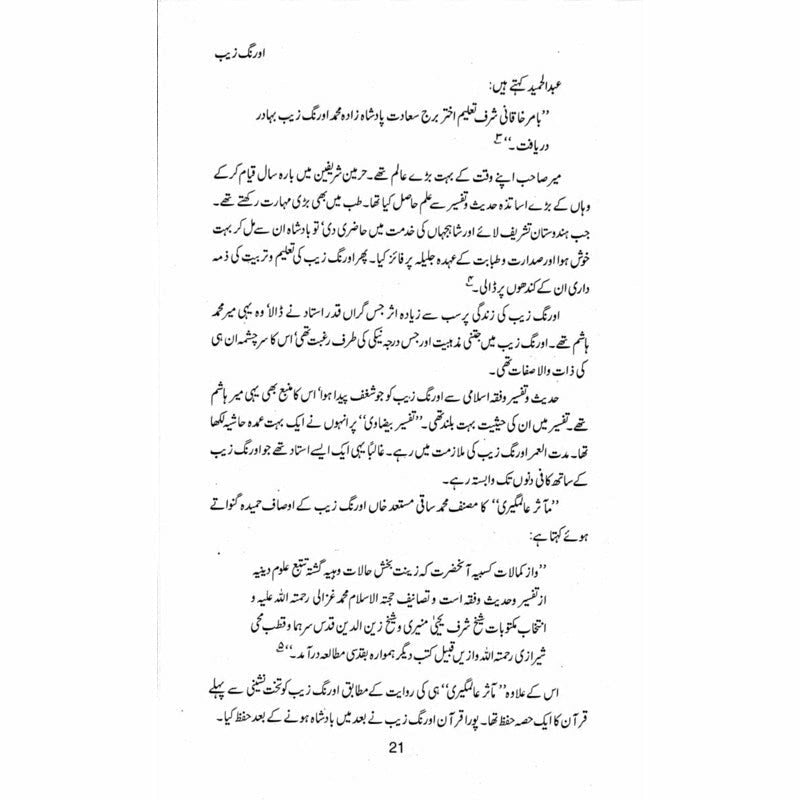 اورنگ زیب
عبدالحمید کہتے ہیں:
’’بامر خاقانی شرف تعلیم اختر برج سعادت پادشاہ زادہ محمد اورنگ زیب بہادر
دریافت۔‘‘۳
میر صاحب اپنے وقت کے بہت بڑے عالم تھے۔ حرمین شریفین میں بارہ سال قیام کر کے
وہاں کے بڑے اساتذہ حدیث وتفسیر سے علم حاصل کیا تھا۔ طب میں بھی بڑی مہارت رکھتے تھے۔
جب ہندوستان تشریف لائے اور شاہجہاں کی خدمت میں حاضری دی‘ تو بادشاہ ان سے مل کر بہت
خوش ہوا اور صدارت و طبابت کے عہدہ جلیلہ پر فائز کیا۔ پھر اورنگ زیب کی تعلیم و تربیت کی ذمہ
داری ان کے کندھوں پر ڈالی۔۴
اورنگ زیب کی زندگی پر سب سے زیادہ اثر جس گراں قدر استاد نے ڈالا‘ وہ یہی میر محمد
ہاشم تھے۔ اورنگ زیب میں جتنی مذہبیت اور جس درجہ نیکی کی طرف رغبت تھی‘ اس کا سرچشمہ ان ہی
کی ذات والا صفات تھی۔
حدیث و تفسیر و فقہ اسلامی سے اورنگ زیب کو جو شغف پیدا ہوا‘ اس کا منبع بھی یہی میر ہاشم
تھے۔ تفسیر میں ان کی حیثیت بہت بلند تھی۔ ’’تفسیر بیضاوی‘‘ پر انہوں نے ایک بہت عمدہ حاشیہ لکھا
تھا۔ مدت العمر اورنگ زیب کی ملازمت میں رہے۔ غالباً یہی ایک ایسے استاد تھے جو اورنگ زیب
کے ساتھ کافی دنوں تک وابستہ رہے۔
’’مآثر عالمگیری‘‘ کا مصنف محمد ساقی مستعد خاں اورنگ زیب کے اوصاف حمیدہ گنواتے
ہوئے کہتا ہے:
’’واز کمالات کسبیہ آنحضرت کہ زینت بخش حالات وہبیہ گشتہ تتبع علوم دینیہ
از تفسیر و حدیث و فقہ است و تصانیف حجتہ الاسلام محمد غزالی رحمتہ اللہ علیہ و
انتخاب مکتوبات شیخ شرف یحییٰ منیری و شیخ زین الدین قدس سرہما و قطب محی
شیرازی رحمتہ اللہ وازیں قبیل کتب دیگر ہموارہ بقدسی مطالعہ درآمد۔‘‘۵
اس کے علاوہ ’’مآثر عالمگیری‘‘ ہی کی روایت کے مطابق اورنگ زیب کو تخت نشینی سے پہلے
قرآن کا ایک حصہ حفظ تھا۔ پورا قرآن اورنگ زیب نے بعد میں بادشاہ ہونے کے بعد حفظ کیا۔
21